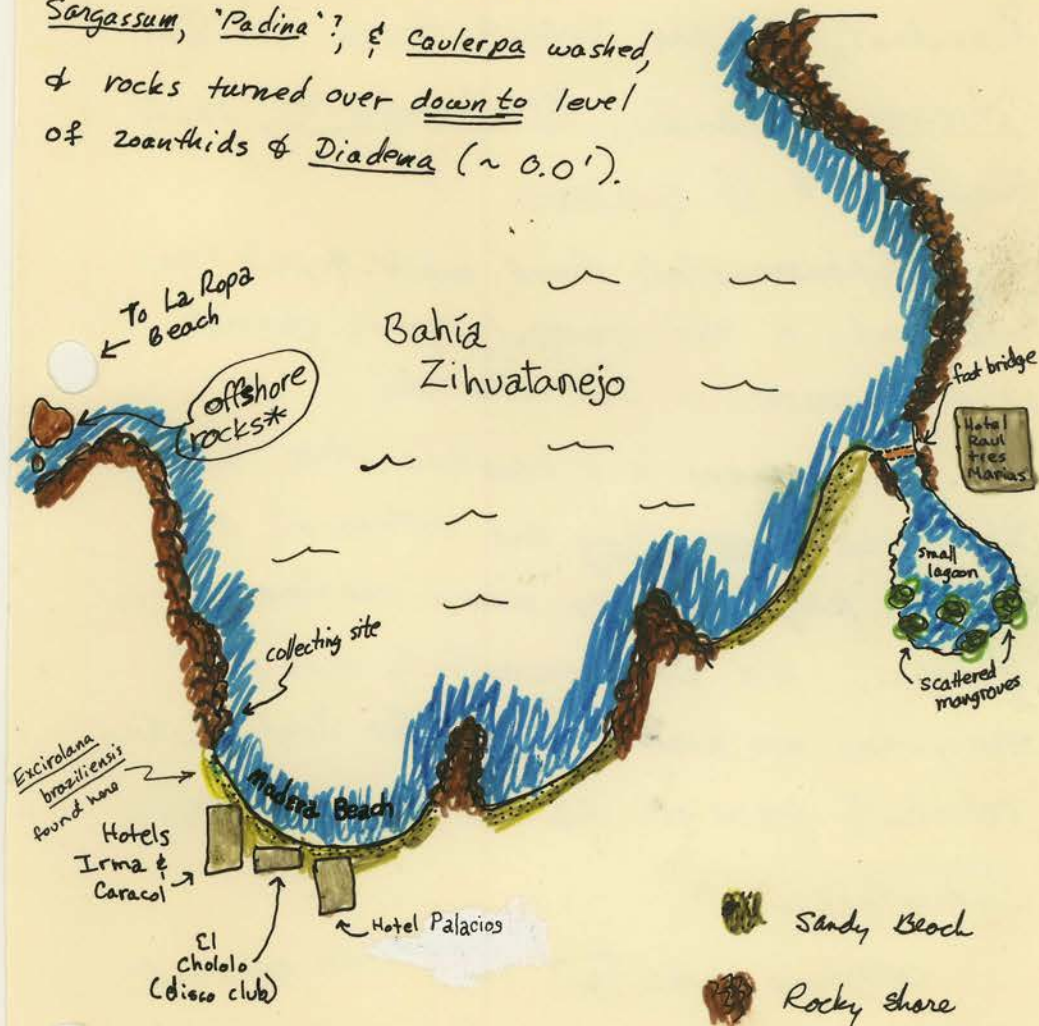 Sargassum, 'Padina'?, & Caulerpa washed,
& rocks turned over down to level
of zoanthids & Diadema (~ 0.0').
To La Ropa
Beach
offshore
rocks*
Bahía
Zihuatanejo
foot bridge
Hotel
Raul
tres
Marias
small
lagoon
scattered
mangroves
collecting site
Excirolana
braziliensis
found here
Madera Beach
Hotels
Irma &
Caracol
El
Chololo
(disco club)
Hotel Palacios
Sandy Beach
Rocky Shore